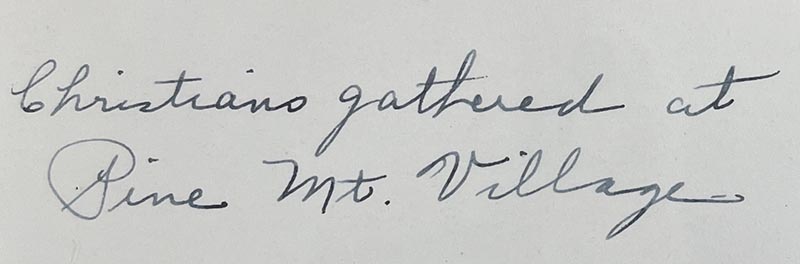 Christians gathered at
Pine Mt. Village